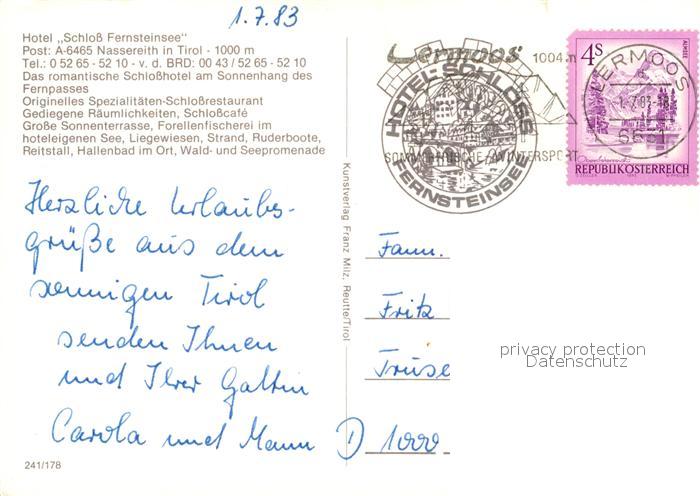 1.7.83
Hotel „Schloß Fernsteinsee"
Post: A-6465 Nassereith in Tirol - 1000 m
Tel.: 0 52 65 - 52 10 - v. d. BRD: 00 43 / 52 65 - 52 10
Das romantische Schloßhotel am Sonnenhang des
Fernpasses
Originelles Spezialitäten-Schloßrestaurant
Gediegene Räumlichkeiten, Schloßcafé
Große Sonnenterrasse, Forellenfischerei im
hoteleigenen See, Liegewiesen, Strand, Ruderboote,
Reitstall, Hallenbad im Ort, Wald- und Seepromenade
Herzliche Urlaubs-
grüße aus dem
sonnigen Tirol
senden Ihnen
und Ihrer Gattin
Carola und Mann
241/178
Kunstverlag Franz Milz, Reutte/Tirol
Lermoos
1004 m
HOTEL-SCHLOSS
FERNSTEINSEE
WINTERSPORT
LERMOOS
4 S
ALMSEE
REPUBLIK ÖSTERREICH
Fam.
Fritz
Truse
D 1000
privacy protection
Datenschutz